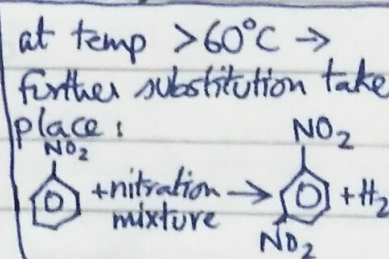 at temp >60°C →
further substitution take
place:
NO₂
NO₂
+nitration → + H₂
mixture
NO₂